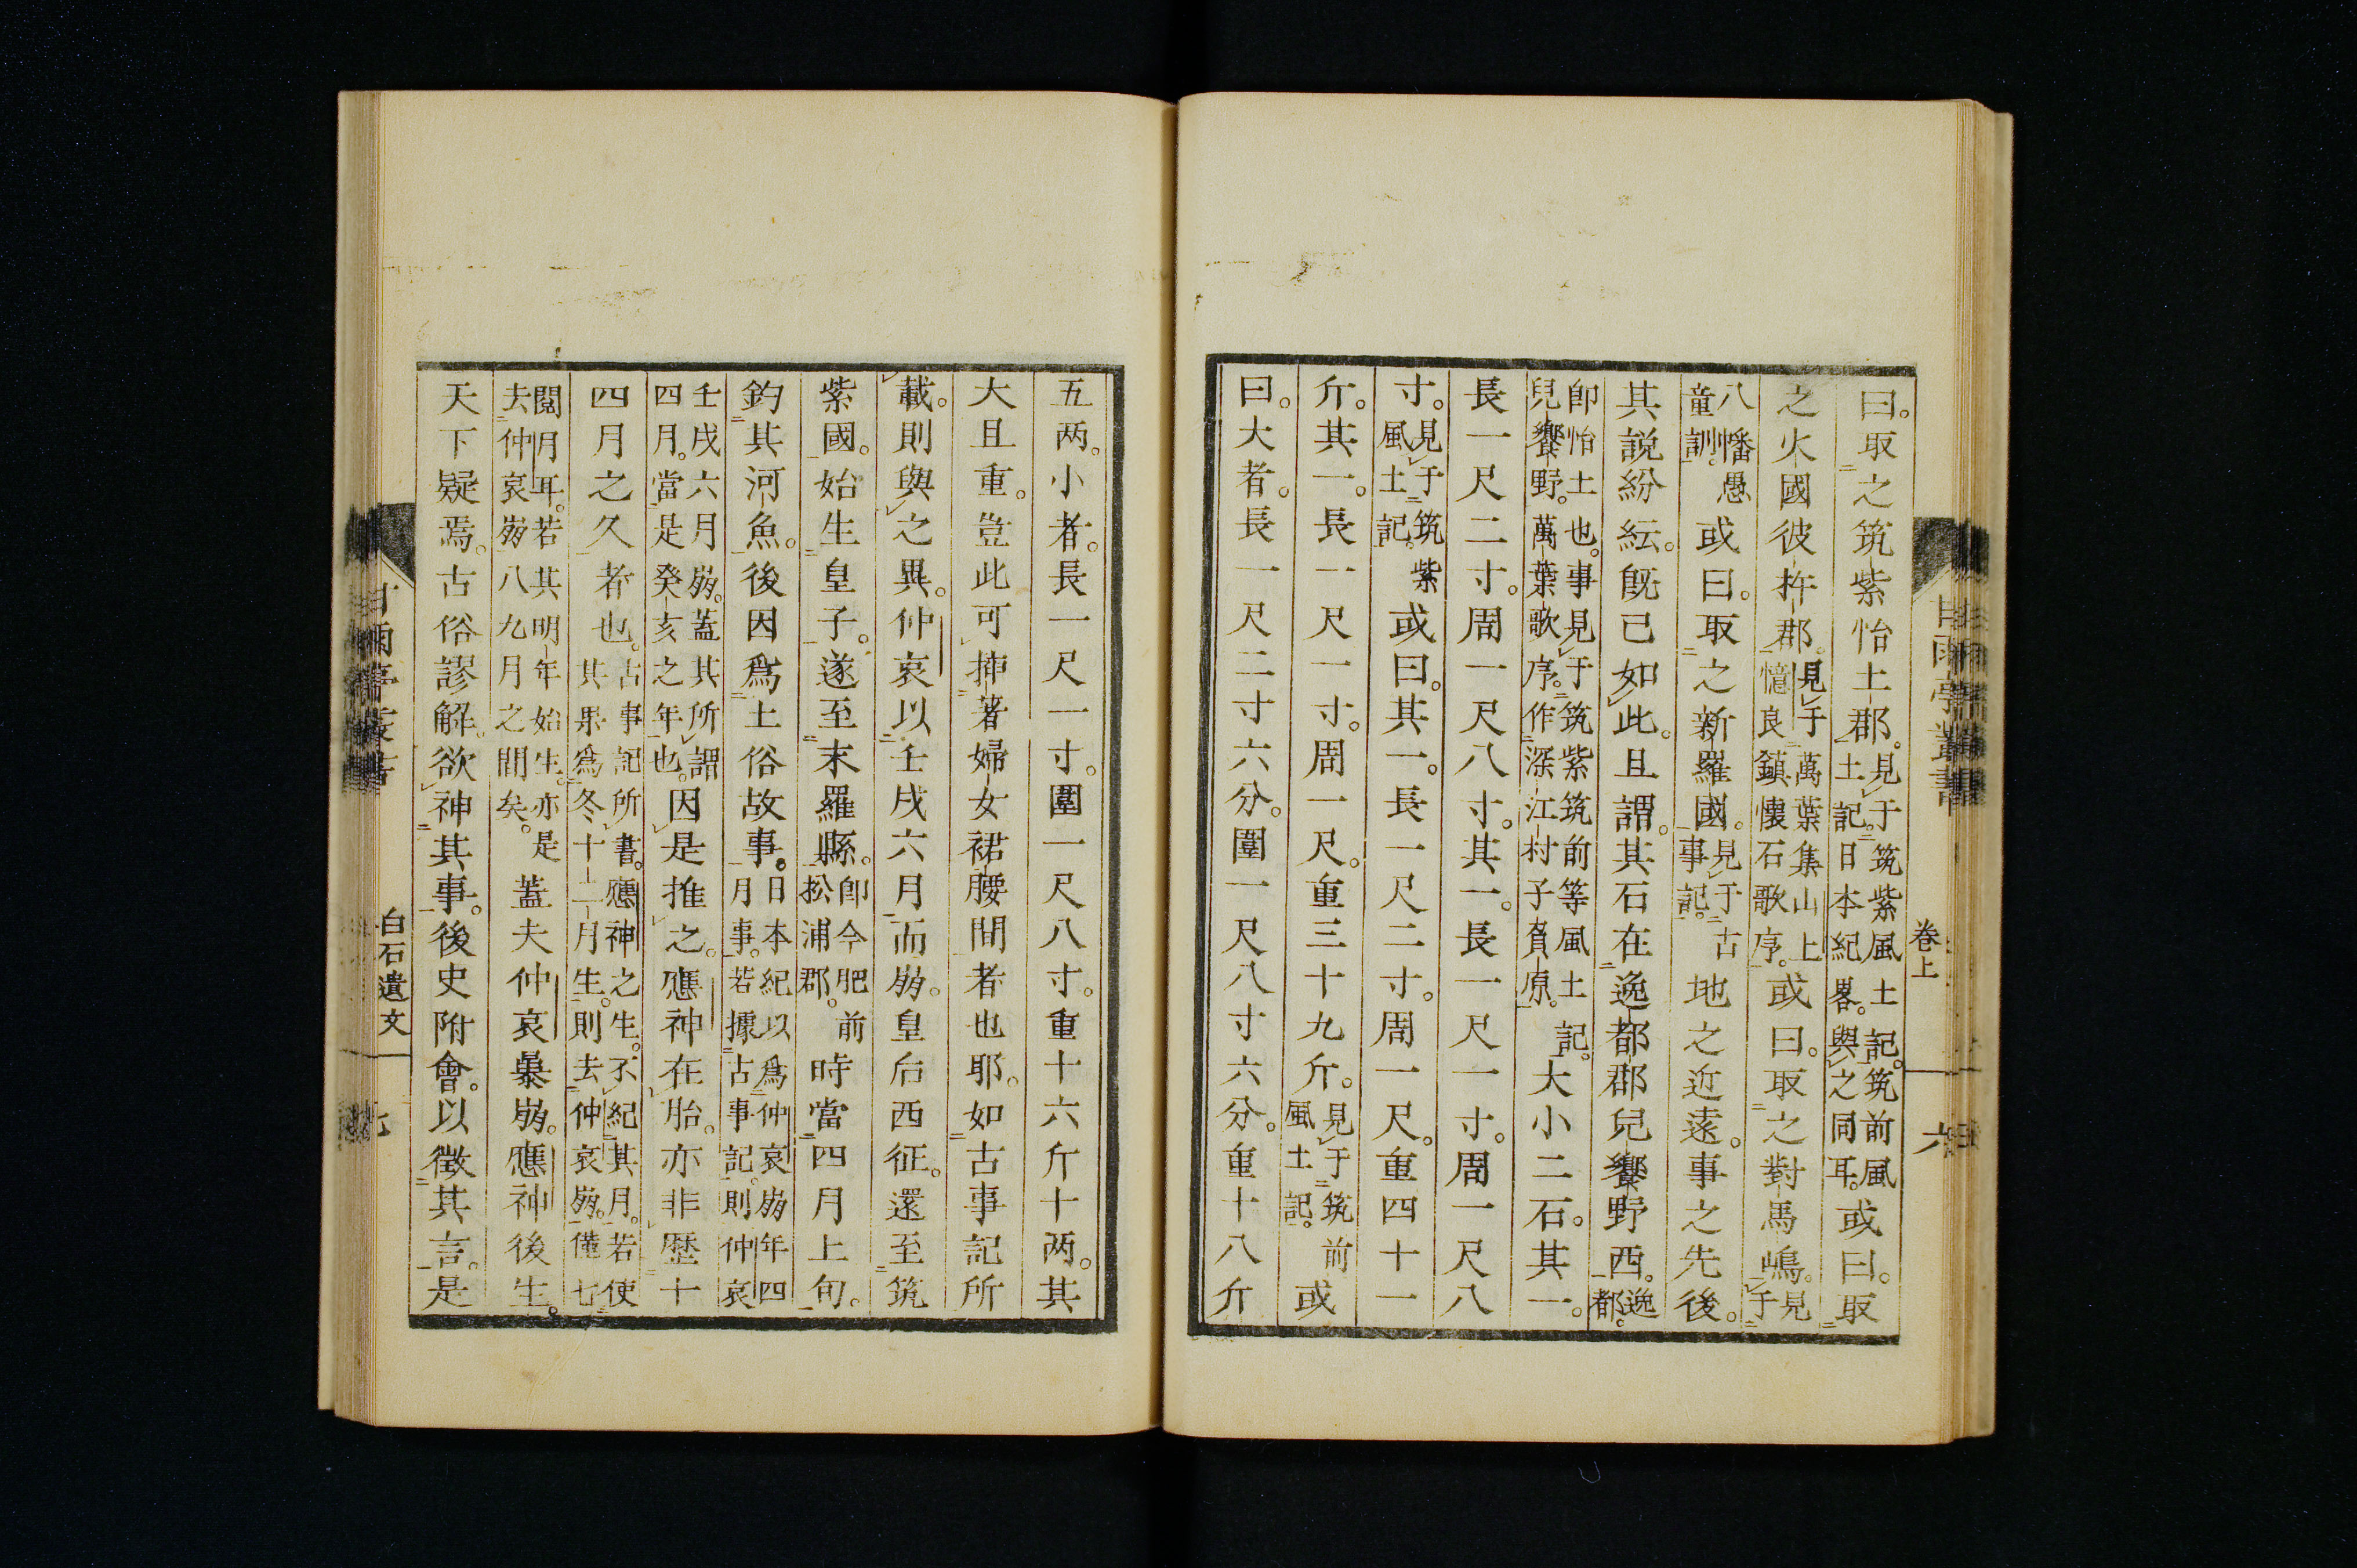 曰。取之筑紫怡土郡。見于筑紫風土記。筑前風土記。日本紀畧。與之同耳。或曰。取
之火國彼杵郡。見于萬葉集山上憶良鎮懷石歌序。或曰。取之對馬嶋。見于
八幡愚童訓。或曰。取之新羅國。見于古事記。地之近遠。事之先後。
其説紛紜。旣已如此。且謂。其石在逸都郡兒饗野西。逸都。
卽怡土也。事見于筑紫筑前等風土記。兒饗野。萬葉歌序。作深江村子負原。大小二石。其一。
長一尺二寸。周一尺八寸。其一。長一尺一寸。周一尺八
寸。見于筑紫風土記。或曰。其一。長一尺二寸。周一尺。重四十一
斤。其一。長一尺一寸。周一尺。重三十九斤。見于筑前風土記。或
曰。大者。長一尺二寸六分。圍一尺八寸六分。重十八斤
五两。小者。長一尺一寸。圍一尺八寸。重十六斤十两。其
大且重。豈此可挿著婦女裙腰間者也耶。如古事記所
載。則與之異。仲哀以壬戌六月而崩。皇后西征。還至筑
紫國。始生皇子。遂至末羅縣。卽今肥前松浦郡。時當四月上旬。
釣其河魚。後因爲土俗故事。日本紀以爲仲哀崩年四月事。若據古事記。則仲哀
壬戌六月崩。蓋其所謂四月。當是癸亥之年也。因是推之。應神在胎。亦非歷十
四月之久者也。古事記所書。應神之生。不紀其月。若使其果爲冬十二月生。則去仲哀崩。僅七
閱月耳。若其明年始生。亦是去仲哀崩八九月之間矣。蓋夫仲哀暴崩。應神後生。
天下疑焉。古俗謬解。欲神其事。後史附會。以徵其言。是
甘雨亭叢書
卷上
六
白石遺文